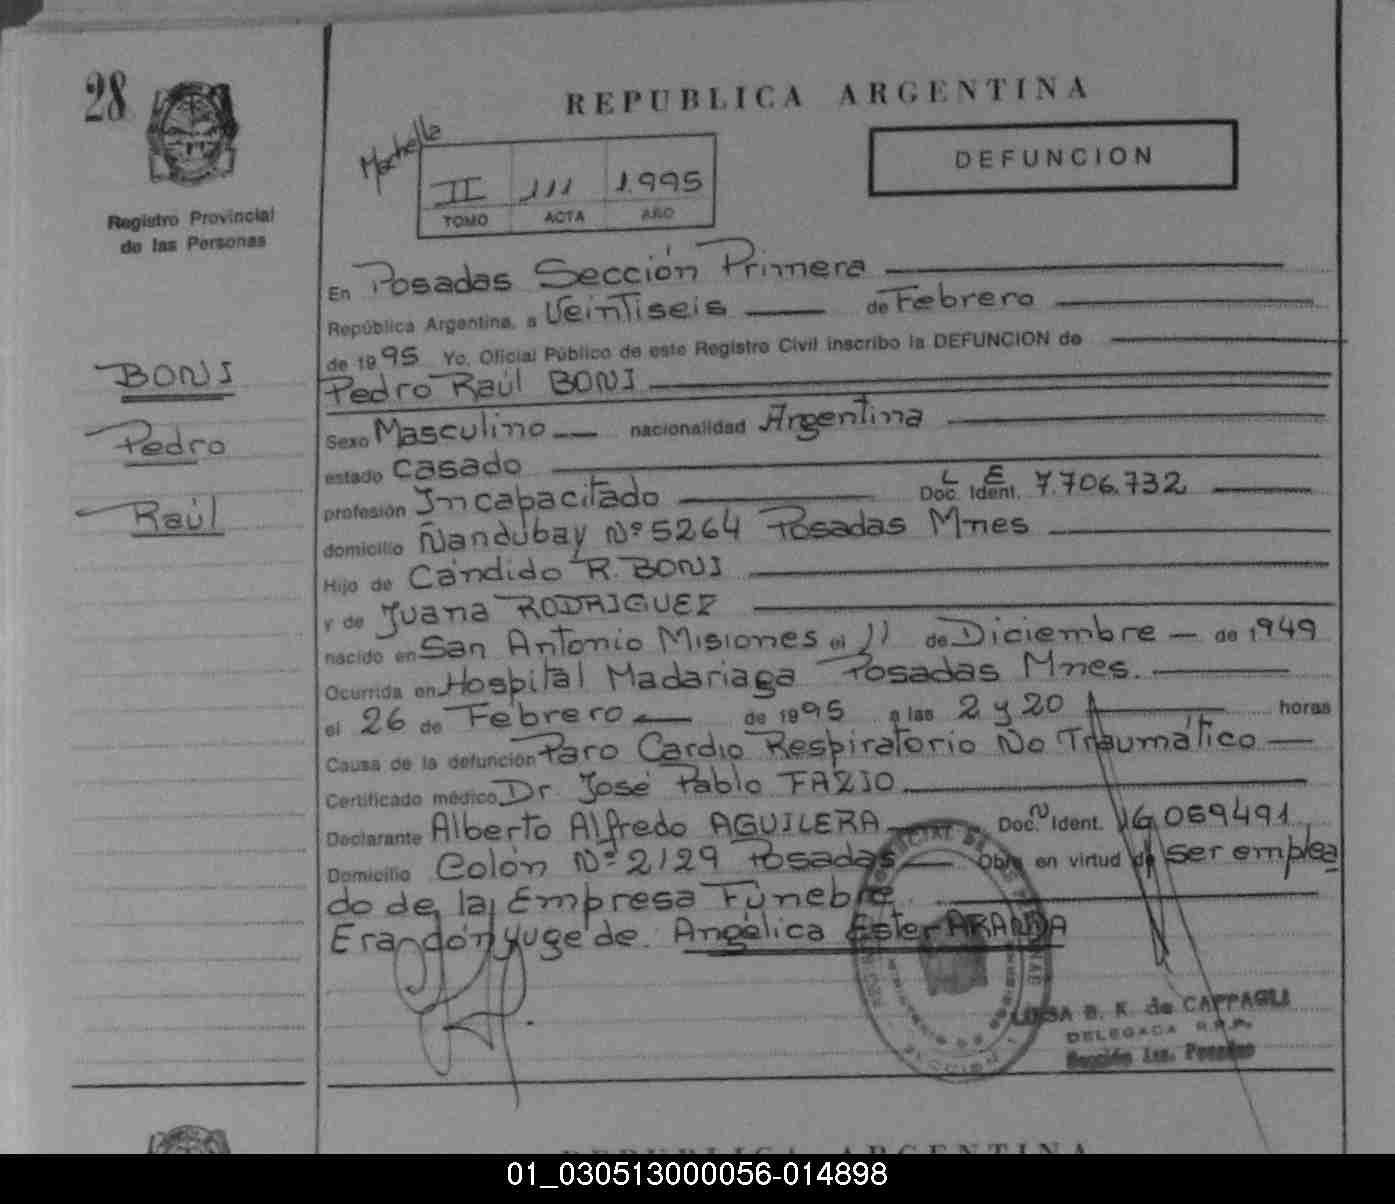 28
Registro Provincial
de las Personas
BONI
Pedro
Raúl
REPUBLICA ARGENTINA
DEFUNCION
II 111 1.995
TOMO ACTA AÑO
En Posadas Sección Primera
República Argentina, a Veintiseis de Febrero
de 1995 Yo, Oficial Público de este Registro Civil inscribo la DEFUNCION de
Pedro Raúl BONI
Sexo Masculino nacionalidad Argentina
estado casado
profesión Incapacitado Doc. Ident. L E 7.706.732
domicilio Ñandubay Nº 5264 Posadas Mnes
Hijo de Cándido R. BONI
y de Juana RODRIGUEZ
nacido en San Antonio Misiones el 11 de Diciembre de 1949
Ocurrida en Hospital Madariaga Posadas Mnes.
el 26 de Febrero de 1995 a las 2 y 20 horas
Causa de la defunción Paro Cardio Respiratorio No Traumático
Certificado médico Dr José Pablo FAZIO
Declarante Alberto Alfredo AGUILERA Doc. Ident. 16059491
Domicilio Colón Nº 2129 Posadas Obra en virtud de ser emplea
do de la Empresa Fúnebre
Era cónyuge de Angélica Ester ARANDA
LUISA B. K. de CAPPAGLI
DELEGADA R.P.P.
Sección 1ra. Posadas
REPUBLICA ARGENTINA
01_030513000056-014898